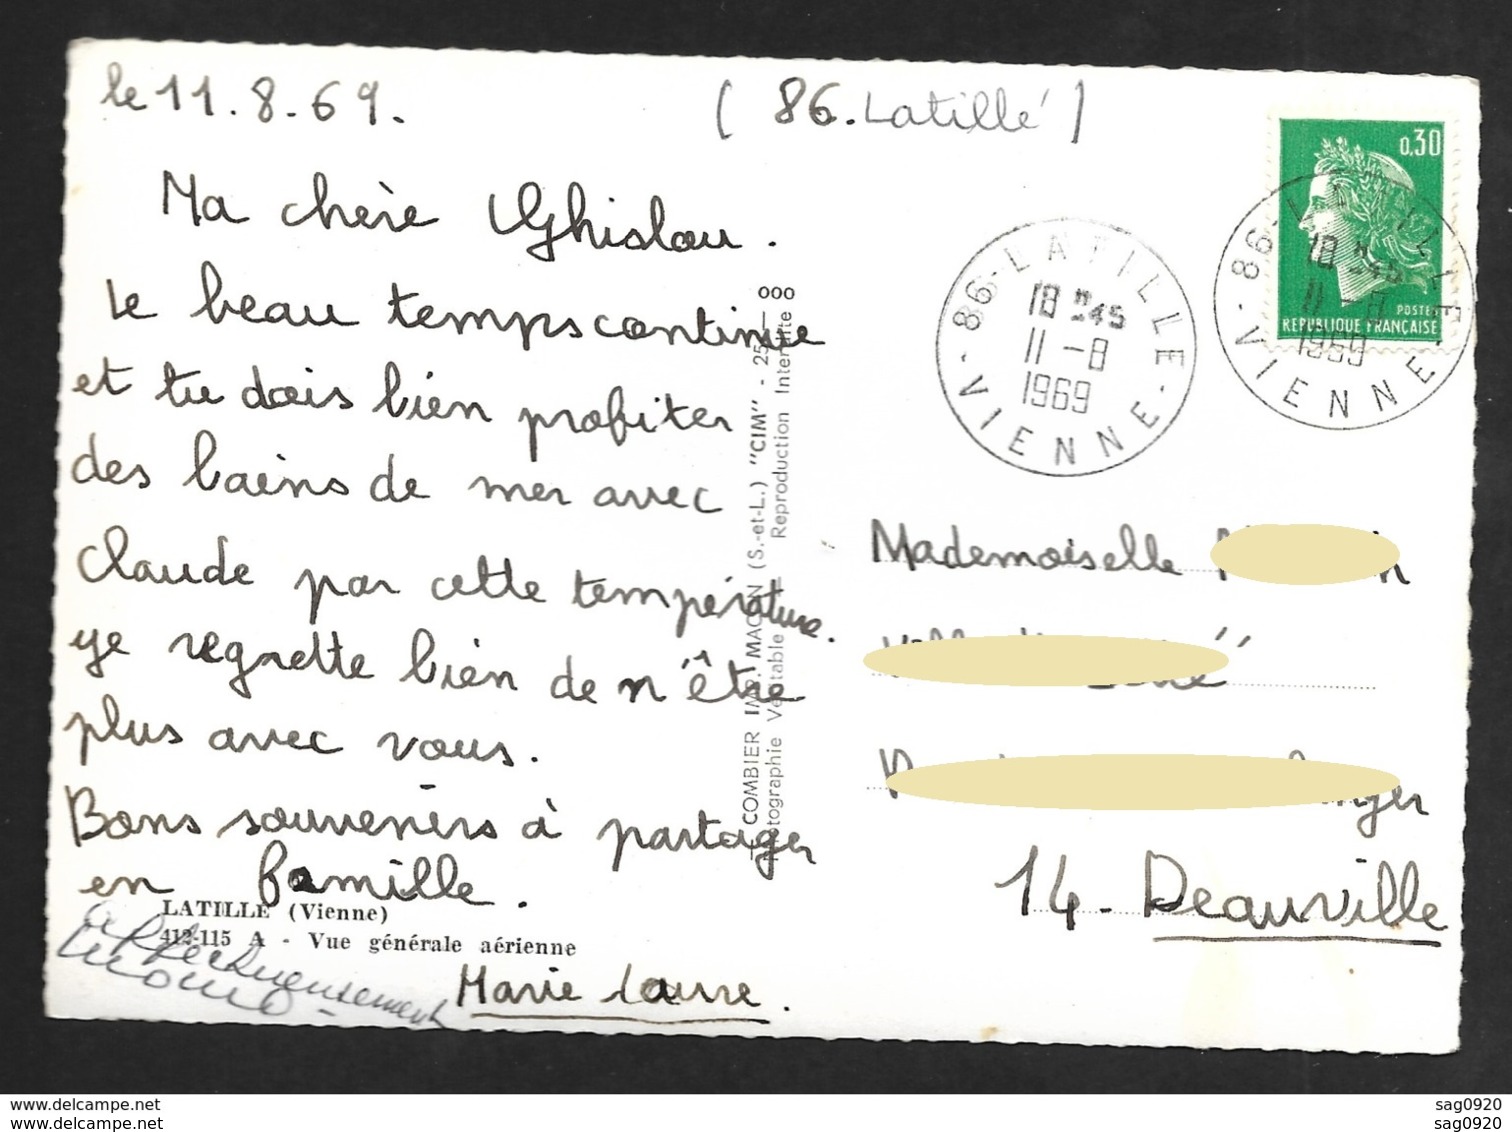 le 11.8.69.
( 86. Latillé )
Ma chère Ghislou.
Le beau temps continue
et tu dois bien profiter
des bains de mer avec
Claude par cette température.
je regrette bien de n'être
plus avec vous.
Bons souvenirs à partager
en famille.
LATILLE (Vienne)
412-115 A - Vue générale aérienne
affectueusement
Marie Laure.
COMBIER IMP. MACON (S.-et-L.) "CIM" - 25
Photographie Véritable - Reproduction Interdite
000
86 - LATILLE - VIENNE -
18 H45
11 - 8
1969
0,30
POSTES
REPUBLIQUE FRANÇAISE
86 - LATILLE - VIENNE -
18 H45
11 - 8
1969
Mademoiselle
14 - Deauville
sag0920
sag0920
sag0920
sag0920